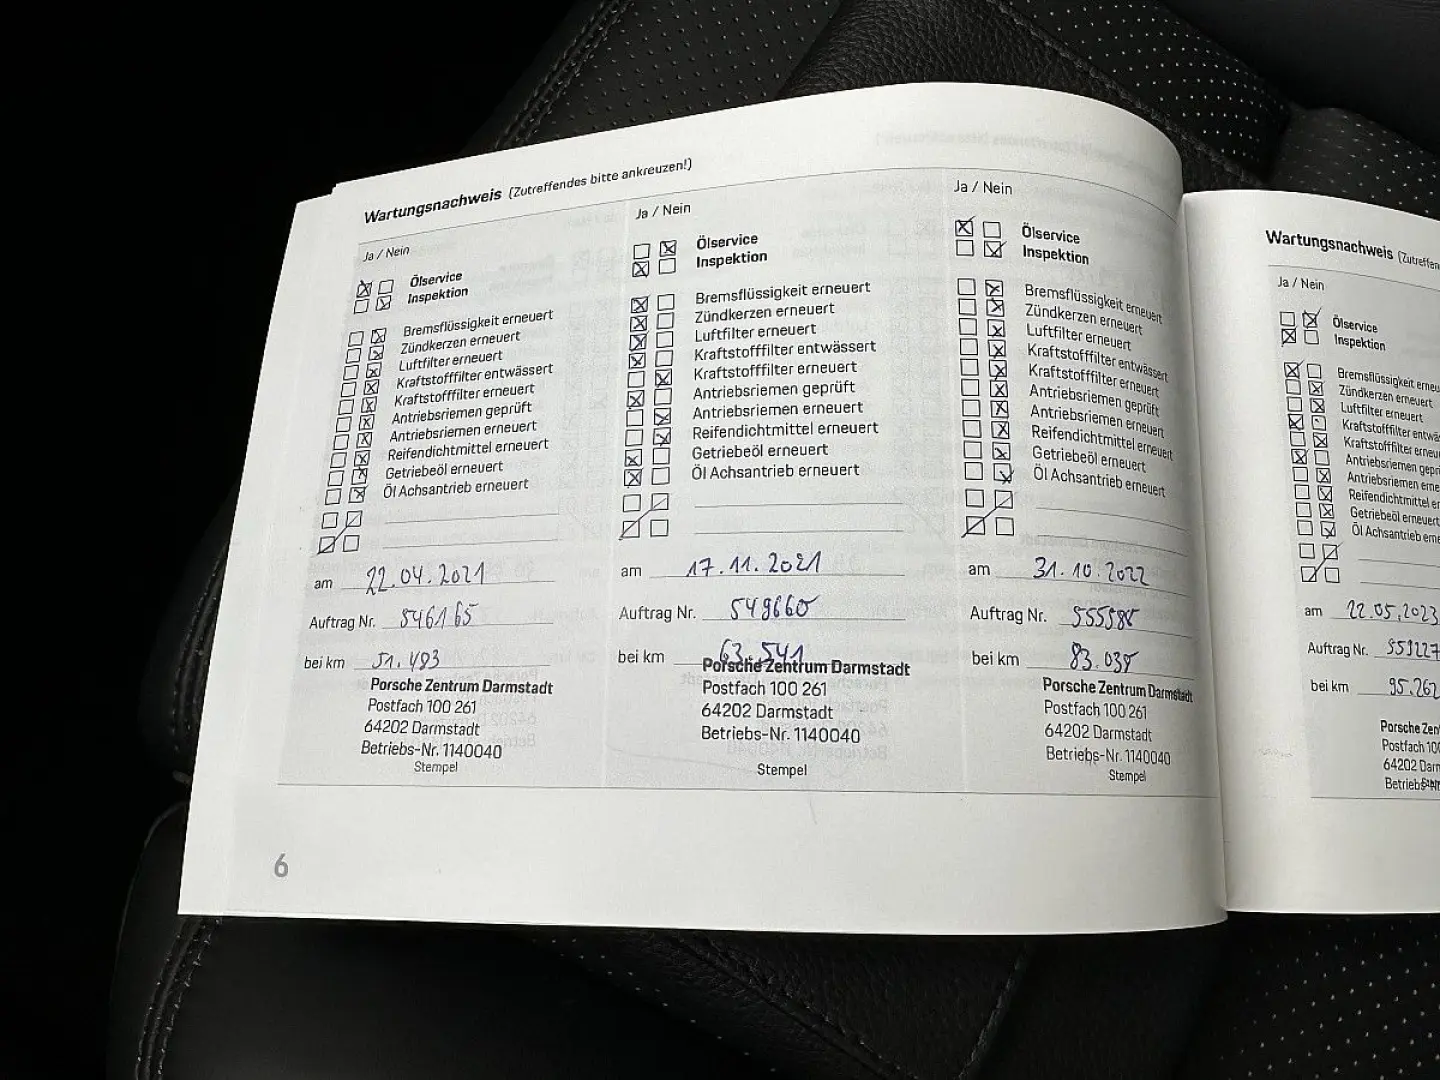 Wartungsnachweis (Zutreffendes bitte ankreuzen!)
Ja / Nein
Ölservice
Inspektion
Bremsflüssigkeit erneuert
Zündkerzen erneuert
Luftfilter erneuert
Kraftstofffilter entwässert
Kraftstofffilter erneuert
Antriebsriemen geprüft
Antriebsriemen erneuert
Reifendichtmittel erneuert
Getriebeöl erneuert
Öl Achsantrieb erneuert
am 22.04.2021
Auftrag Nr. 546165
bei km 51.493
Porsche Zentrum Darmstadt
Postfach 100 261
64202 Darmstadt
Betriebs-Nr. 1140040
Stempel
Ja / Nein
Ölservice
Inspektion
Bremsflüssigkeit erneuert
Zündkerzen erneuert
Luftfilter erneuert
Kraftstofffilter entwässert
Kraftstofffilter erneuert
Antriebsriemen geprüft
Antriebsriemen erneuert
Reifendichtmittel erneuert
Getriebeöl erneuert
Öl Achsantrieb erneuert
am 17.11.2021
Auftrag Nr. 549660
bei km 63.541
Porsche Zentrum Darmstadt
Postfach 100 261
64202 Darmstadt
Betriebs-Nr. 1140040
Stempel
Ja / Nein
Ölservice
Inspektion
Bremsflüssigkeit erneuert
Zündkerzen erneuert
Luftfilter erneuert
Kraftstofffilter entwässert
Kraftstofffilter erneuert
Antriebsriemen geprüft
Antriebsriemen erneuert
Reifendichtmittel erneuert
Getriebeöl erneuert
Öl Achsantrieb erneuert
am 31.10.2022
Auftrag Nr.
bei km
Porsche Zentrum Darmstadt
Postfach 100 261
64202 Darmstadt
Betriebs-Nr. 1140040
Stempel
6
Wartungsnachweis (Zutreffen
Ja / Nein
Ölservice
Inspektion
Bremsflüssigkeit erneu
Zündkerzen erneuert
Luftfilter erneuert
Kraftstofffilter entwäs
Kraftstofffilter erneuer
Antriebsriemen gepr
Antriebsriemen erne
Reifendichtmittel er
Getriebeöl erneuert
Öl Achsantrieb erne
am 22.05.2023
Auftrag Nr.
bei km 95.262
Porsche Zen
Postfach 100
64202 Darm